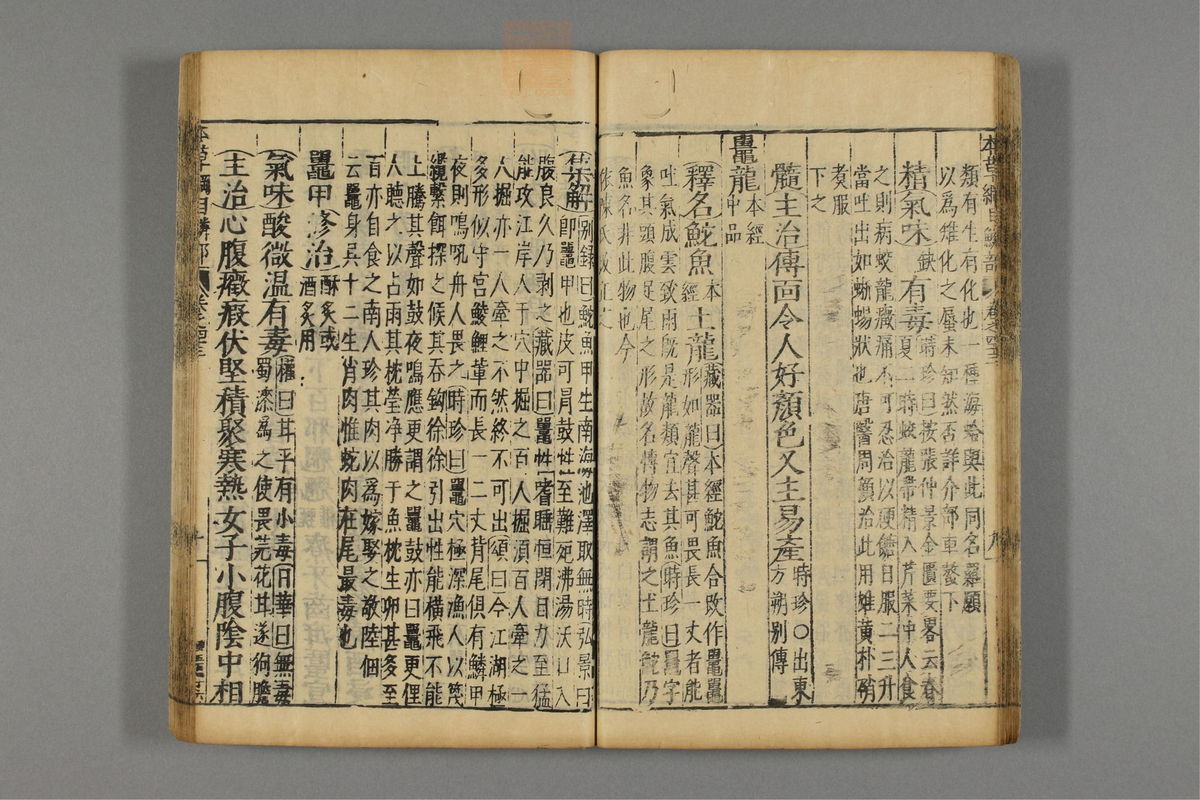 類有生有化也一種海蛤與此同名羅願
以爲雉化之蜃未知然否詳介部車螯下
精氣味缺有毒時珍曰按張仲景金匱要畧云春
夏二時蛟龍帶精入芹菜中人食
之則病蛟龍癥痛不可忍治以硬餹日服二三升
當吐出如蜥蜴狀也唐醫周顧治此用雄黃朴硝
煑服
下之
髓主治傅面令人好顏色又主易產時珍〇出東
方朔別傳
鼉龍本經
中品
釋名鮀魚本
經土龍藏器曰本經鮀魚合改作鼉鼉
形如龍聲甚可畏長一丈者能
吐氣成雲致雨旣是龍類宜去其魚時珍曰鼉字
象其頭腹足尾之形故名博物志謂之土龍鮀乃
魚名非此物也今
依陳氏改正之
集解別錄曰鮀魚甲生南海池澤取無時弘景曰
卽鼉甲也皮可冐鼓性至難死沸湯沃口入
腹良久乃剥之藏器曰鼉性嗜睡恒閉目力至猛
能攻江岸人于穴中掘之百人掘須百人牽之一
人掘亦一人牽之不然終不可出頌曰今江湖極
多形似守宮鯪鯉輩而長一二丈背尾俱有鱗甲
夜則鳴吼舟人畏之時珍曰鼉穴極深漁人以篾
纜繫餌探之候其吞鈎徐徐引出性能橫飛不能
上騰其聲如鼓夜鳴應更謂之鼉鼓亦曰鼉更俚
人聽之以占雨其枕瑩净勝于魚枕生卵甚多至
百亦自食之南人珍其肉以爲嫁娶之敬陸佃
云鼉身具十二生肖肉惟蛇肉在尾最毒也
鼉甲修治酥炙或
酒炙用
氣味酸微温有毒權曰耳平有小毒日華曰無毒
蜀漆爲之使畏芫花甘遂狗膽
主治心腹癥瘕伏堅積聚寒熱女子小腹陰中相